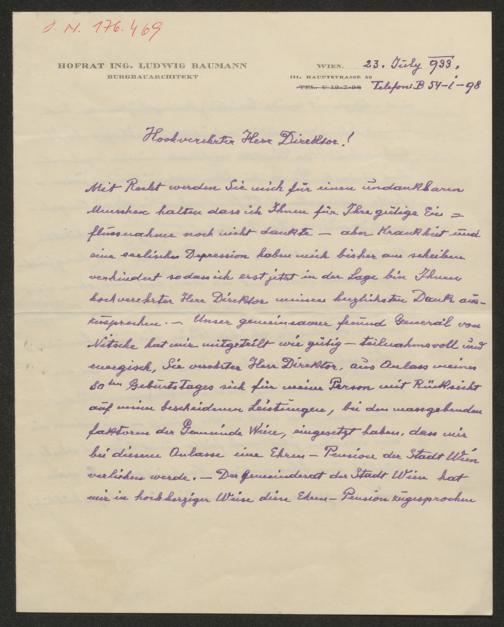 J. N. 176.469
HOFRAT ING. LUDWIG BAUMANN
BURGBAUARCHITEKT
WIEN, 23. July 933.
III. HAUPTSTRASSE
TEL. U 19-7-98 Telefon: B 54-1-98
Hochverehrter Herr Direktor!
Mit Recht werden Sie mich für einen undankbaren
Menschen halten dass ich Ihnen für Ihre gütige Ein=
flussnahme noch nicht dankte – aber Krankheit und
eine seelische Depression haben mich bisher am schreiben
verhindert sodass ich erst jetzt in der Lage bin Ihnen
hochverehrter Herr Direktor meinen herzlichsten Dank aus-
zusprechen. – Unser gemeinsamer freund General von
Nitsche hat mir mitgeteilt wie gütig – teilnahmsvoll und
energisch, Sie verehrter Herr Direktor, aus Anlass meines
80ten Geburtstages sich für meine Person mit Rücksicht
auf meine bescheidenen Leistungen, bei den massgebenden
faktoren der Gemeinde Wien, eingesetzt haben, dass mir
bei diesem Anlasse eine Ehren – Pension der Stadt Wien
verliehen werde. – Der Gemeinderat der Stadt Wien hat
mir in hochherziger Weise diese Ehren – Pension zugesprochen